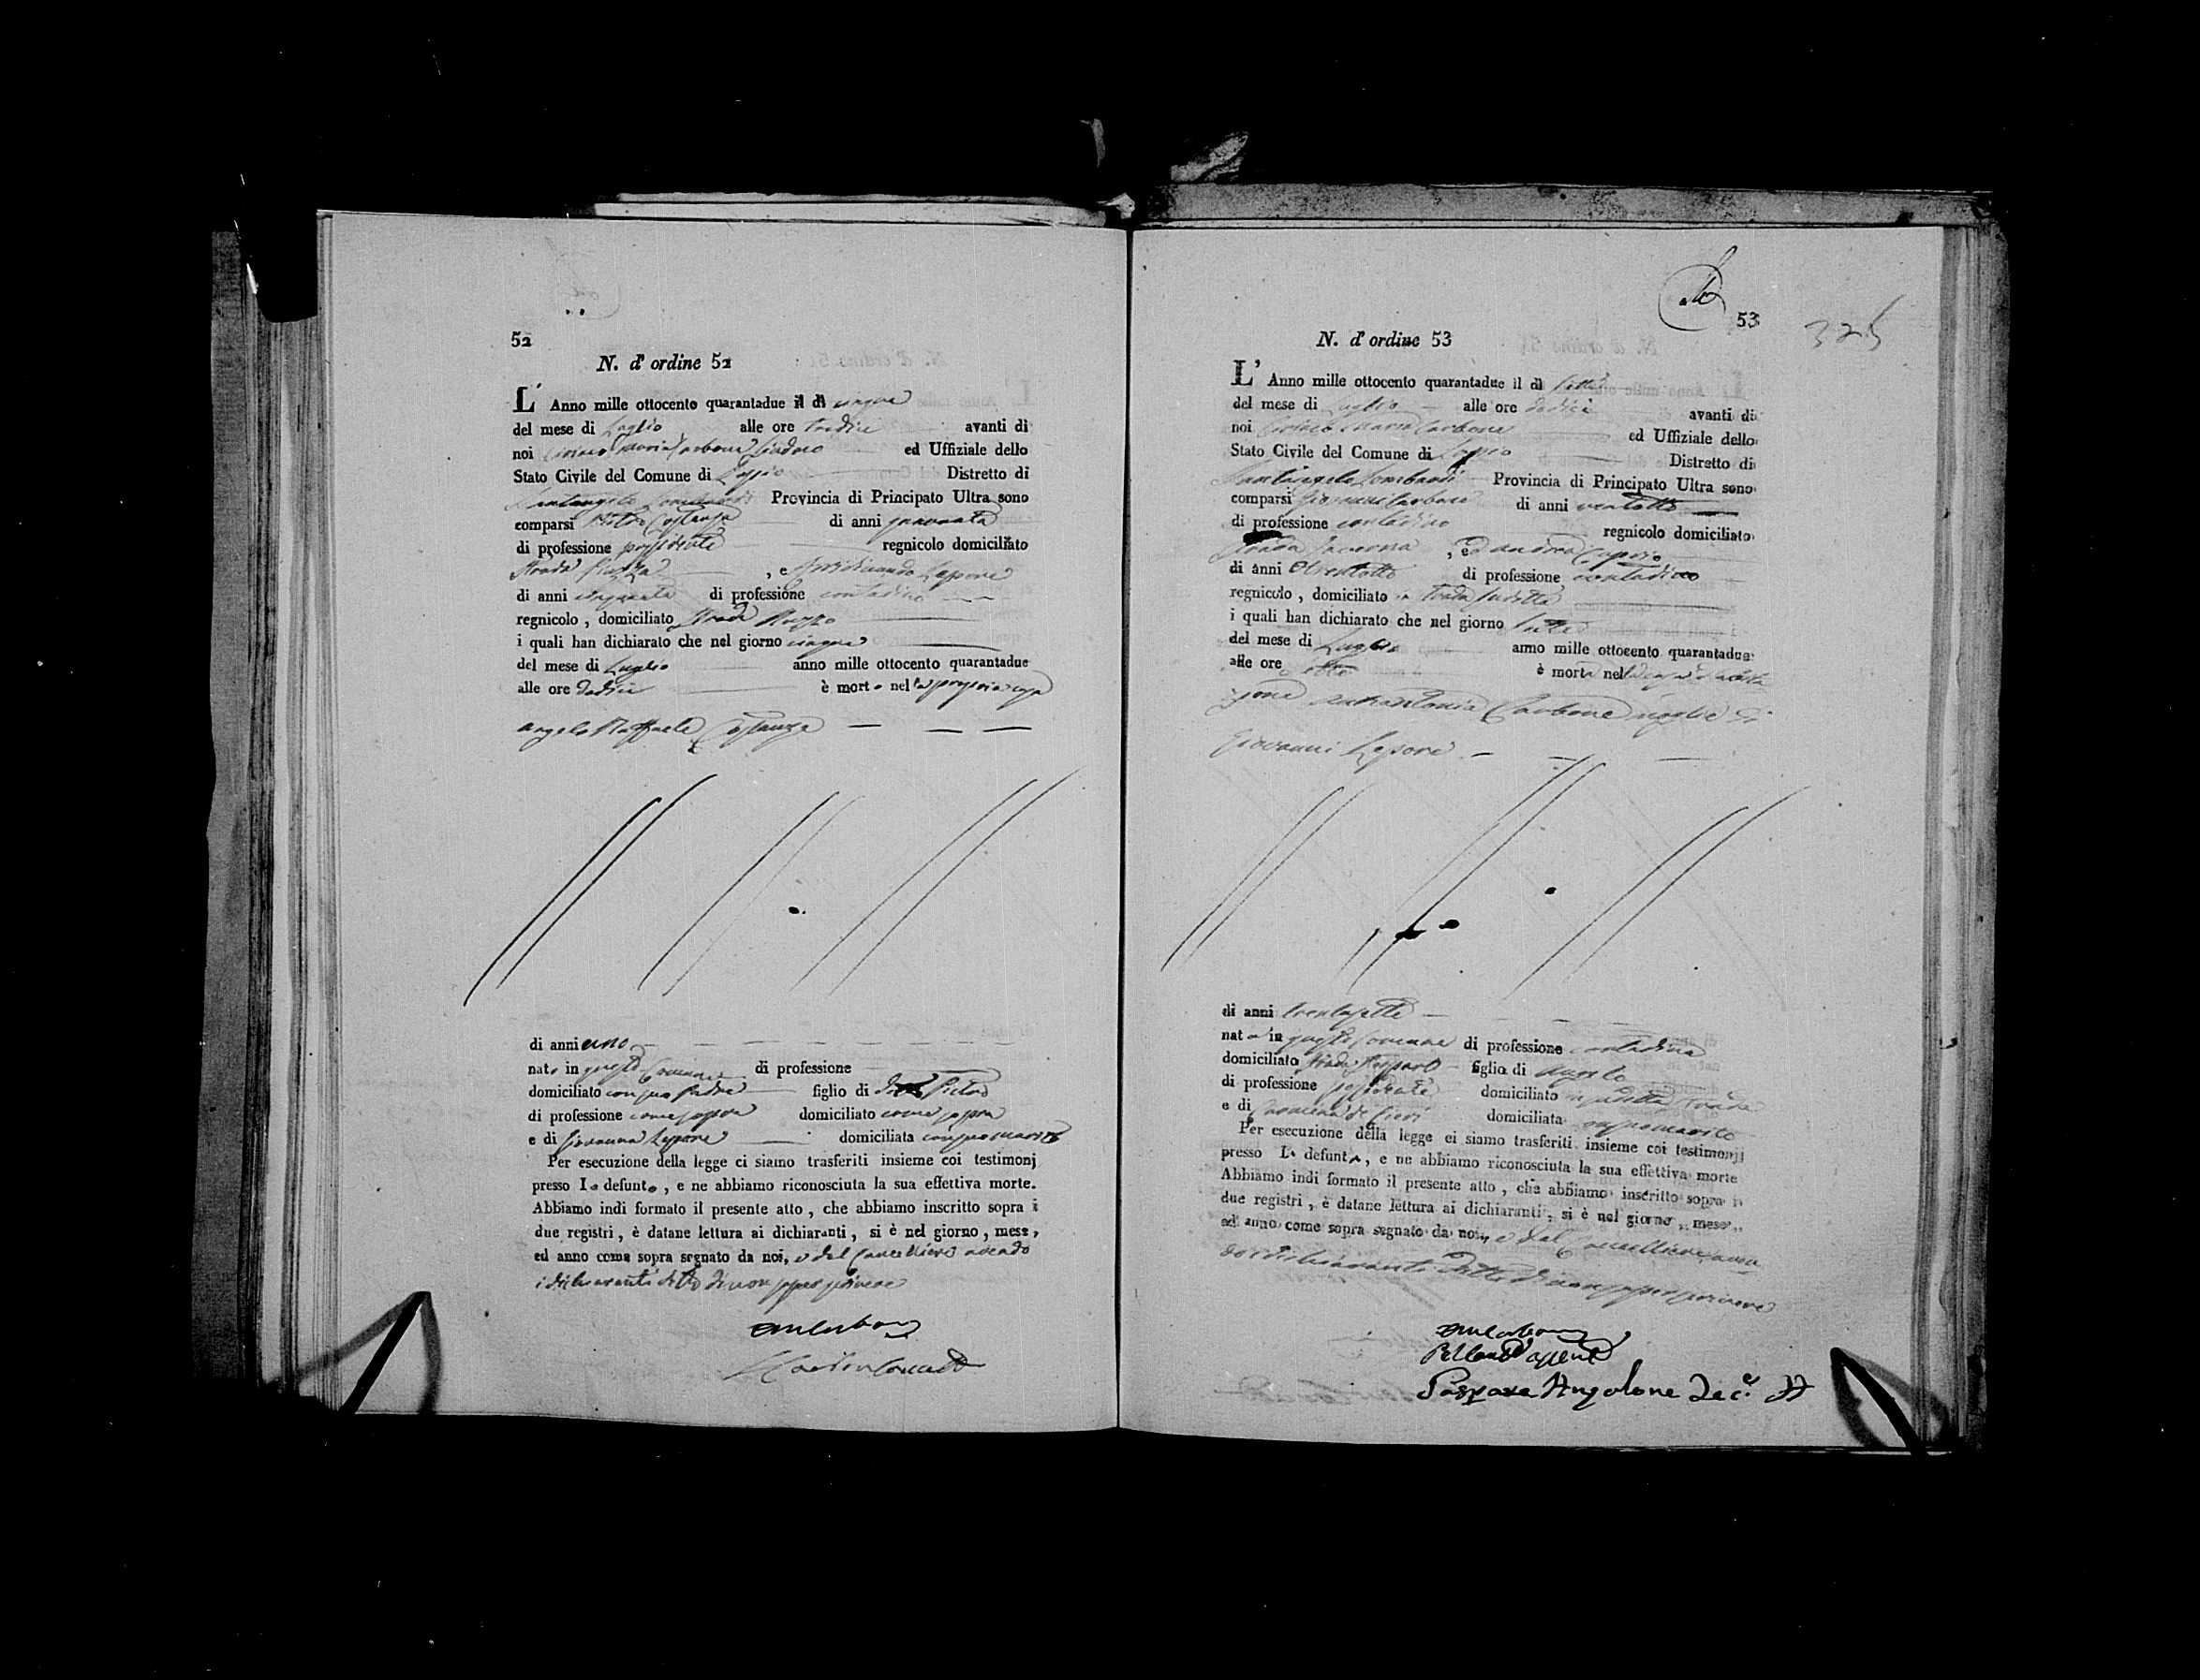 52
N. d' ordine 52
L' Anno mille ottocento quarantadue il dì cinque
del mese di Luglio alle ore tredici avanti di
noi Ciriaco Maria Carbone Sindaco ed Uffiziale dello
Stato Civile del Comune di Lapio Distretto di
Santangelo Lombardi Provincia di Principato Ultra sono
comparsi Pietro Costanza di anni quaranta
di professione possidente regnicolo domiciliato
Strada Piazza , e Ferdinando Lepore
di anni cinquanta di professione contadino
regnicolo , domiciliato Strada
i quali han dichiarato che nel giorno cinque
del mese di Luglio anno mille ottocento quarantadue
alle ore dodici è morto nella propria casa
Angelo Raffaele Costanza
di anni uno
nato in questo Comune di professione
domiciliato con suo Padre figlio di Pietro
di professione come sopra domiciliato come sopra
e di Giovanna Lepore domiciliata con suo marito
Per esecuzione della legge ci siamo trasferiti insieme coi testimonj
presso Lo defunto , e ne abbiamo riconosciuta la sua effettiva morte.
Abbiamo indi formato il presente atto , che abbiamo inscritto sopra i
due registri , è datane lettura ai dichiaranti , si è nel giorno , mese ,
ed anno come sopra segnato da noi, e dal Cancelliere avendo
i dichiaranti detto di non saper scrivere
53
325
N. d' ordine 53
L' Anno mille ottocento quarantadue il dì sette
del mese di Luglio alle ore dodici avanti di
noi Ciriaco Maria Carbone ed Uffiziale dello
Stato Civile del Comune di Lapio Distretto di
Santangelo Lombardi Provincia di Principato Ultra sono
comparsi Giovanni Carbone di anni ventotto
di professione contadino regnicolo domiciliato
Strada Taverna , ed Andrea
di anni trentotto di professione contadino
regnicolo , domiciliato in Strada sudetta
i quali han dichiarato che nel giorno sette
del mese di Luglio anno mille ottocento quarantadue
alle ore otto è morta nella casa
Carbone moglie di
Giovanni Lepore
di anni trentasette
nata in questo Comune di professione contadina
domiciliato Strada figlia di Angelo
di professione possidente domiciliato in sudetta Strada
e di Carmina domiciliata con suo marito
Per esecuzione della legge ci siamo trasferiti insieme coi testimonj
presso La defunta , e ne abbiamo riconosciuta la sua effettiva morte
Abbiamo indi formato il presente atto , che abbiamo inscritto sopra i
due registri , è datane lettura ai dichiaranti , si è nel giorno , mese ,
ed anno come sopra segnato da noi, e dal Cancelliere aven
do i dichiaranti detto di non saper scrivere
Gaspare Angolone Dec.e